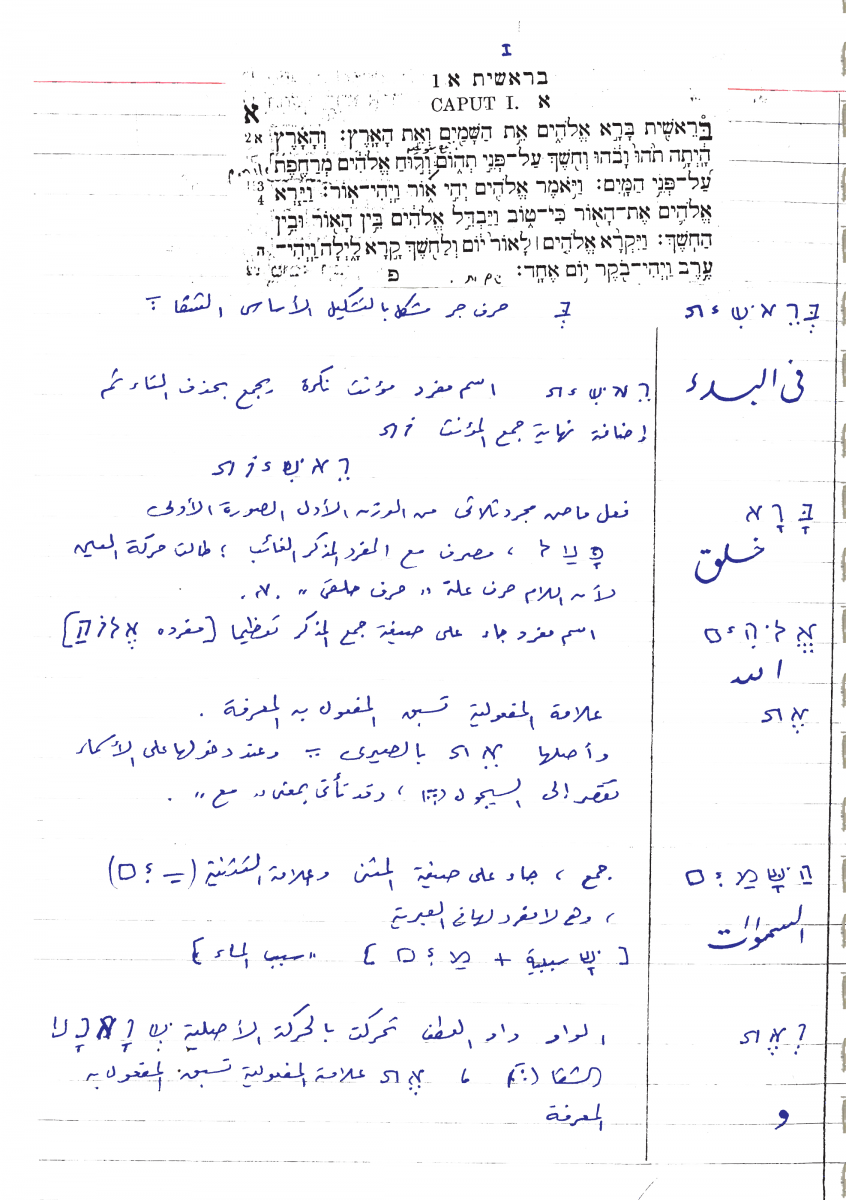 I
בראשית א 1
CAPUT I. א
א
בְּרֵאשִׁית בָּרָא אֱלֹהִים אֵת הַשָּׁמַיִם וְאֵת הָאָרֶץ׃ וְהָאָרֶץ 2 א
הָיְתָה תֹהוּ וָבֹהוּ וְחֹשֶׁךְ עַל־פְּנֵי תְהוֹם וְרוּחַ אֱלֹהִים מְרַחֶפֶת
עַל־פְּנֵי הַמָּיִם׃ וַיֹּאמֶר אֱלֹהִים יְהִי אוֹר וַיְהִי־אוֹר׃ וַיַּרְא 3 4
אֱלֹהִים אֶת־הָאוֹר כִּי־טוֹב וַיַּבְדֵּל אֱלֹהִים בֵּין הָאוֹר וּבֵין
הַחֹשֶׁךְ׃ וַיִּקְרָא אֱלֹהִים ׀ לָאוֹר יוֹם וְלַחֹשֶׁךְ קָרָא לָיְלָה וַיְהִי־ ה
עֶרֶב וַיְהִי־בֹקֶר יוֹם אֶחָד׃ פ
בְּרֵאשִׁית בְּ حرف جر مشكل بالتشكيل الأساسى الشفا
فى البدء
רֵאשִׁית اسم مفرد مؤنث نكرة ويجمع بحذف التاء ثم
إضافة نهاية جمع المؤنث וֹת
רֵאשִׁיוֹת
בָּרָא فعل ماض مجرد ثلاثى من الوزن الأول الصورة الأولى
خلق
פָּעַל ، مصرف مع المفرد المذكر الغائب ؛ طالت حركة العين
لأن اللام حرف علة " حرف حلقى " .א.
אֱלֹהִים اسم مفرد جاء على صيغة جمع المذكر تعظيما [مفرده אֱלוֹהַּ]
الله
אֵת علامة المفعولية تسبق المفعول به المعرفة .
وأصلها אֵת بالصيرى وعند دخولها على الأسماء
تقصر إلى السيجول ، وقد تأتى بمعنى " مع " .
הַשָּׁמַיִם جمع ، جاء على صيغة المثنى وعلامة التثنية (ַיִם)
السموات
، وهى لا مفرد لها فى العبرية
[שָׁ سببية + מַיִם] "سبب الماء}
וְאֵת الواو واو العطف تحركت بالحركة الأصلية
الشفا ، אֵת علامة المفعولية تسبق المفعول به
و
المعرفة